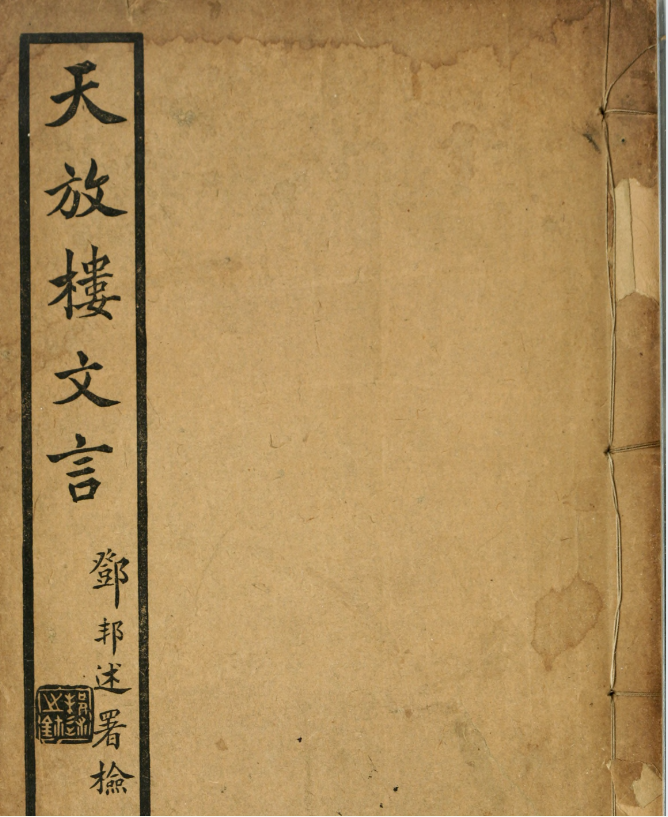 天放樓文言
鄧邦述署檢